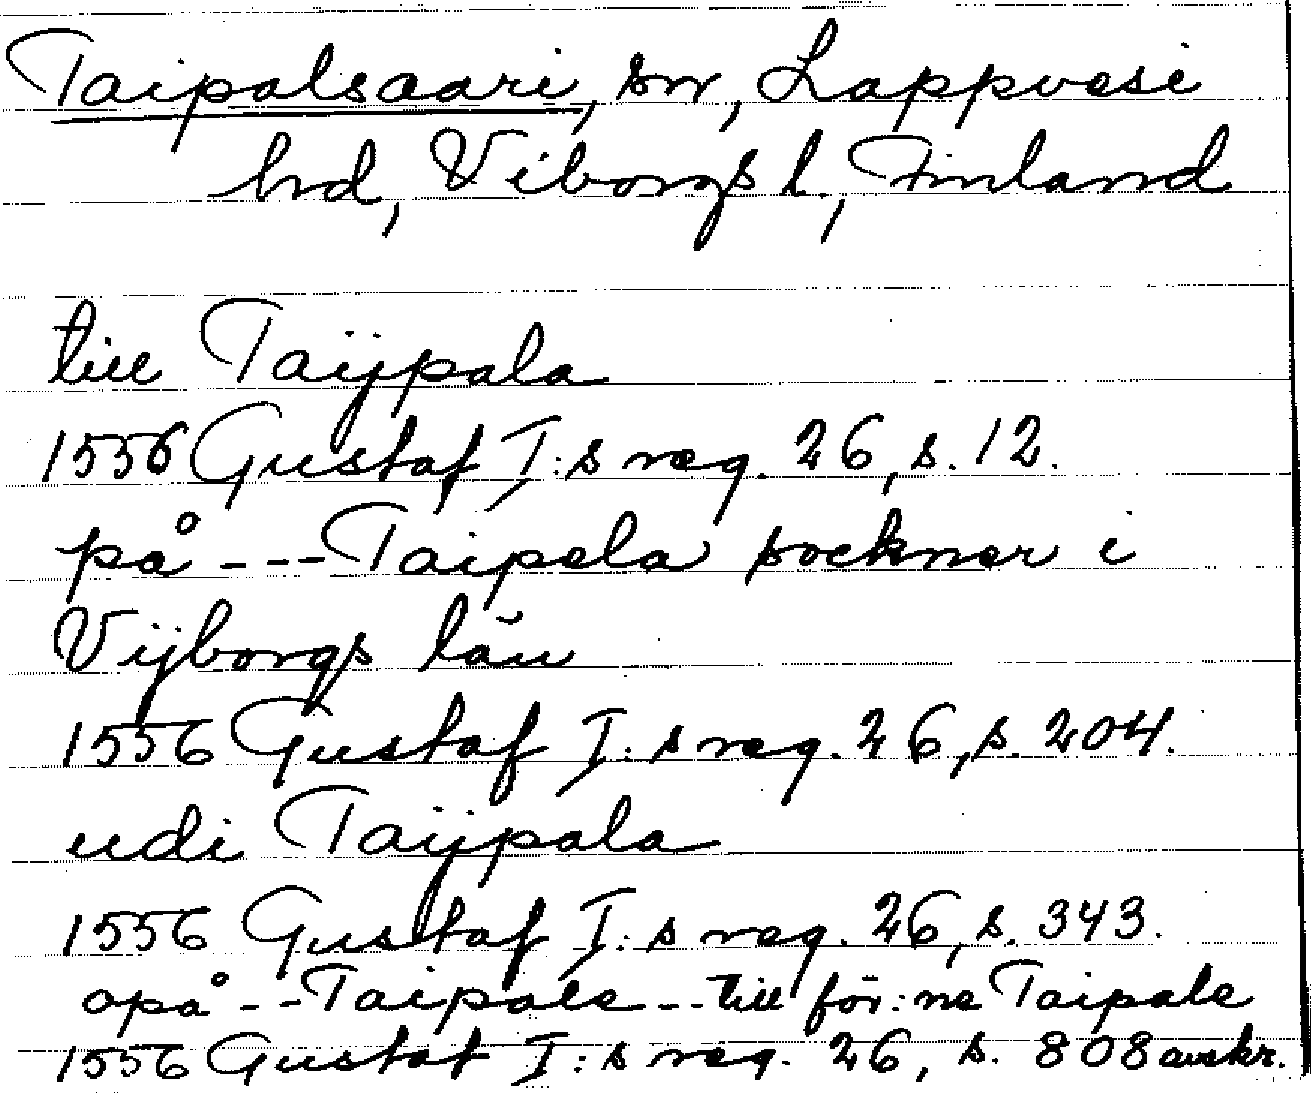 Taipalsaari, sn, Lappvesi
hrd, Viborgs l., Finland
till Taijpala
1556 Gustaf I:s reg. 26, s. 12.
på --- Taipela sockner i
Vijborgs län
1556 Gustaf I:s reg. 26, s. 204.
udi Taijpala
1556 Gustaf I:s reg. 26, s. 343.
opå -- Taipale -- till för:ne Taipale
1556 Gustaf I:s reg. 26, s. 808 avskr.